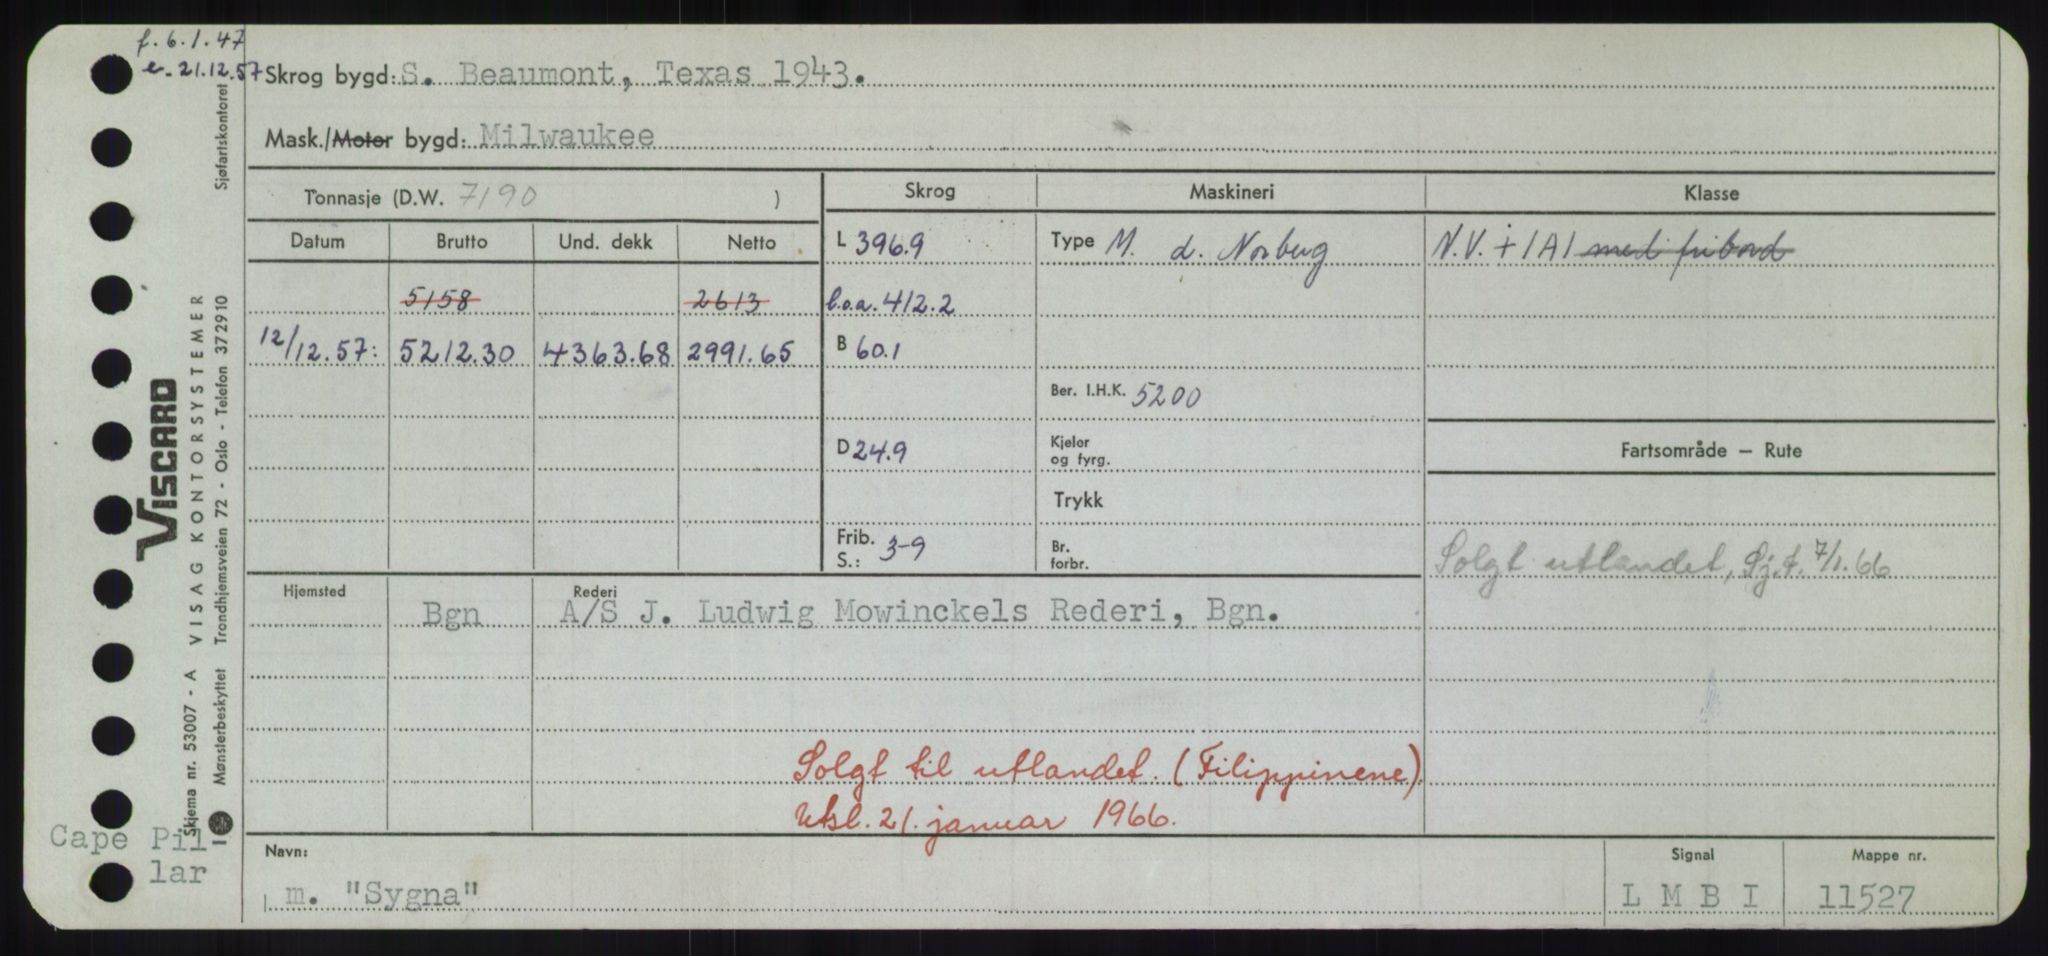 f. 6.1.47
e. 21.12.57
Skrog bygd: S. Beaumont, Texas 1943.
Mask./Motor bygd: Milwaukee
Tonnasje (D.W. 7190 )
Skrog
Maskineri
Klasse
Datum
Brutto
Und. dekk
Netto
L 396.9
Type M. d. Norberg
N.V. + 1A1 med fribord
5158
2613
l.o.a. 412.2
12/12.57:
5212.30
4363.68
2991.65
B 60.1
Ber. I.H.K. 5200
D 24.9
Kjeler
og fyrg.
Fartsområde – Rute
Trykk
Frib.
S.: 3-9
Br.
forbr.
Solgt utlandet, Sj.t. 7/1.66
Hjemsted
Bgn
Rederi
A/S J. Ludwig Mowinckels Rederi, Bgn.
Solgt til utlandet. (Filippinene).
Utsl. 21. januar 1966.
Navn:
m. "Sygna"
Signal
L M B I
Mappe nr.
11527
Cape Pil
lar
VISCARD
Skjema nr. 53007 - A VISAG KONTORSYSTEMER
Mønsterbeskyttet Trondhjemsveien 72 - Oslo - Telefon 372910
Sjøfartskontoret